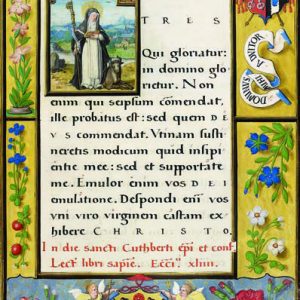 T R E S
Qui gloriatur:
in domino glo
rietur. Non
enim qui seipsum cōmendat,
ille probatus est: sed quem D E
V S commendat. Vtinam susti
neretis modicum quid insipi
entie mee: sed et supportate
me. Emulor enim vos D E I
emulatione. Despondi enī vos
vni viro virginem castam ex
hibere C H R I S T O.
In die sancti Cuthberti ep̄i et conf
Lect. libri sapiē.
DOMINVS
MIHI
ADIVTOR